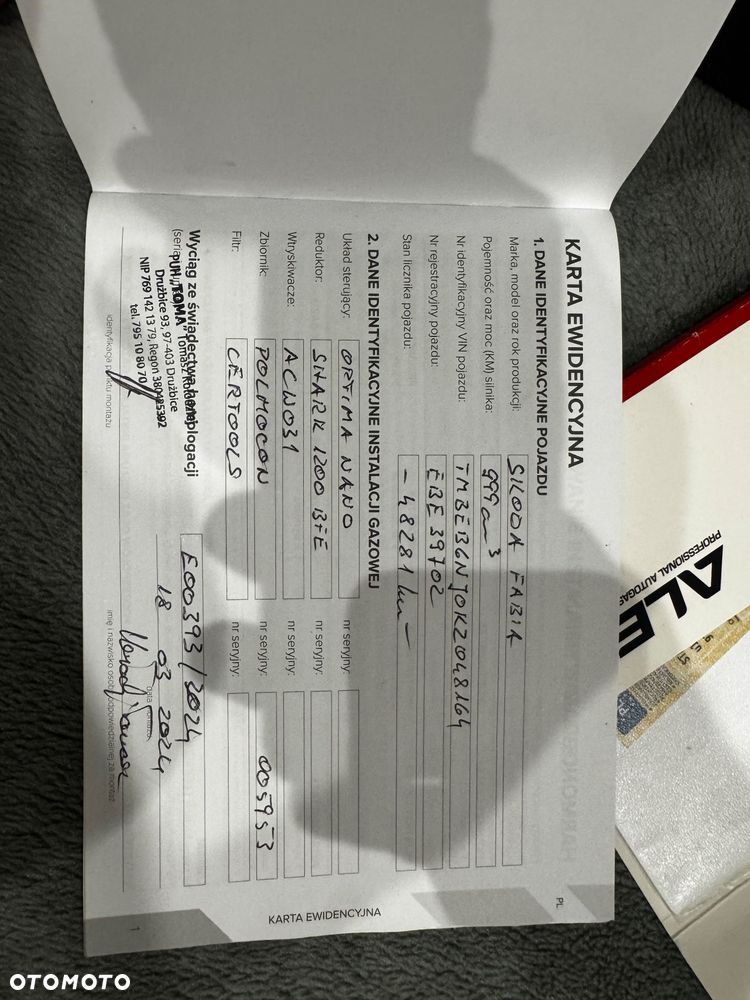 KARTA EWIDENCYJNA
PL
1. DANE IDENTYFIKACYJNE POJAZDU
Marka, model oraz rok produkcji: SKODA FABIA
Pojemność oraz moc (KM) silnika: 999cm³
Nr identyfikacyjny VIN pojazdu: TMBEB6NJ0KZ048164
Nr rejestracyjny pojazdu: EBE39702
Stan licznika pojazdu: - 48281 km -
2. DANE IDENTYFIKACYJNE INSTALACJI GAZOWEJ
Układ sterujący: OPTIMA NANO nr seryjny:
Reduktor: SHARK 1200 nr seryjny:
Wtryskiwacze: ACW031 nr seryjny:
Zbiornik: POLMOCON nr seryjny: 005953
Filtr: CERTOOLS nr seryjny:
Wyciąg ze świadectwa homologacji E00393/2024
PUH TOMA
Drużbice 93, 97-403 Drużbice
NIP 769 142 13 79, Regon 380425392
tel. 795 10 80 70
18 03 2024
identyfikacja punktu montażu
imię i nazwisko osoby odpowiedzialnej za montaż
KARTA EWIDENCYJNA
1
ALE
PROFESSIONAL AUTOGAS
OTOMOTO